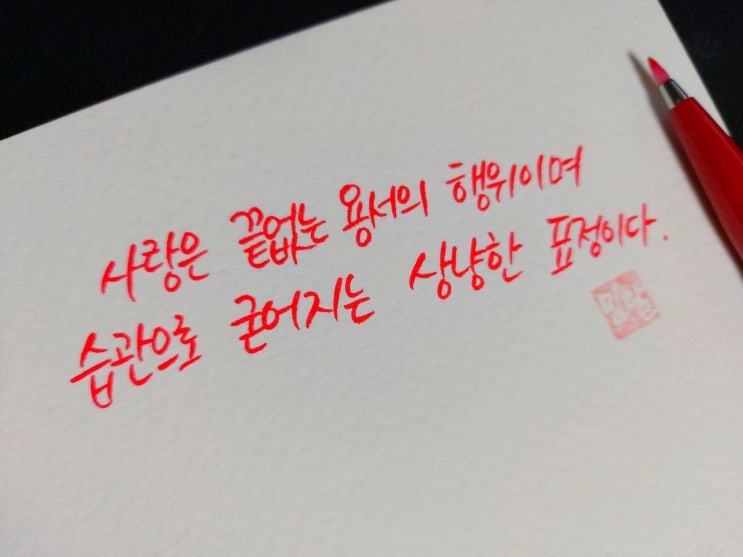 사랑은 끝없는 용서의 행위이며
습관으로 굳어지는 상냥한 표정이다.